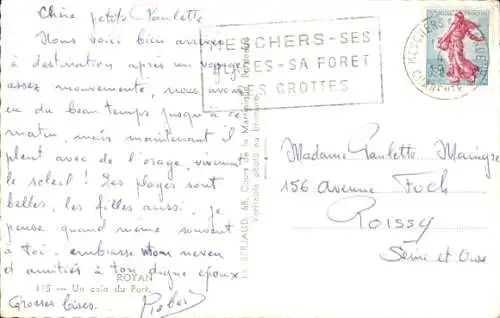 Chère petite Paulette
Nous voici bien arrivés
à destination après un voyage
assez mouvementé, nous avons
eu du beau temps jusqu'à ce
matin, mais maintenant il
pleut avec de l'orage, vivement
le soleil ! Les plages sont
belles, les filles aussi, je
pense quand même souvent
à toi. embrasse mon neveu
et amitiés à ton digne epoux
Grosses bises.
ROYAN
115 — Un coin du Port.
BERJAUD, 68, Cours de la Martinique, Bordeaux
Véritable photo au bromure
MESCHERS-SES
PLAGES-SA FORET
SES GROTTES
MESCHERS
CHARENTE
Madame Paulette
156 Avenue Foch
ROISSY
Seine et Oise